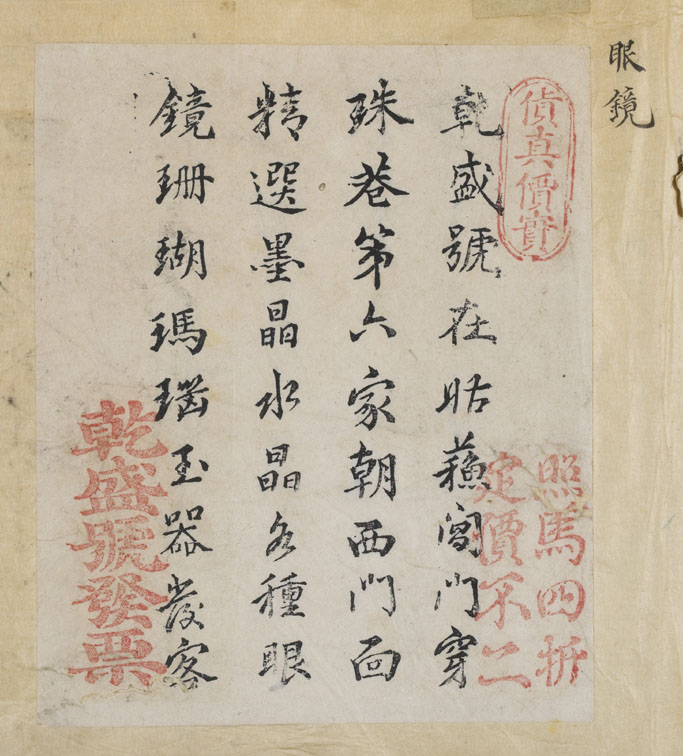 眼鏡
貨真價實
乾盛號在姑蘓閶門穿
珠巷第六家朝西門面
精選墨晶水晶各種眼
鏡珊瑚瑪瑙玉器發客
照馬四折
定價不二
乾盛號發票